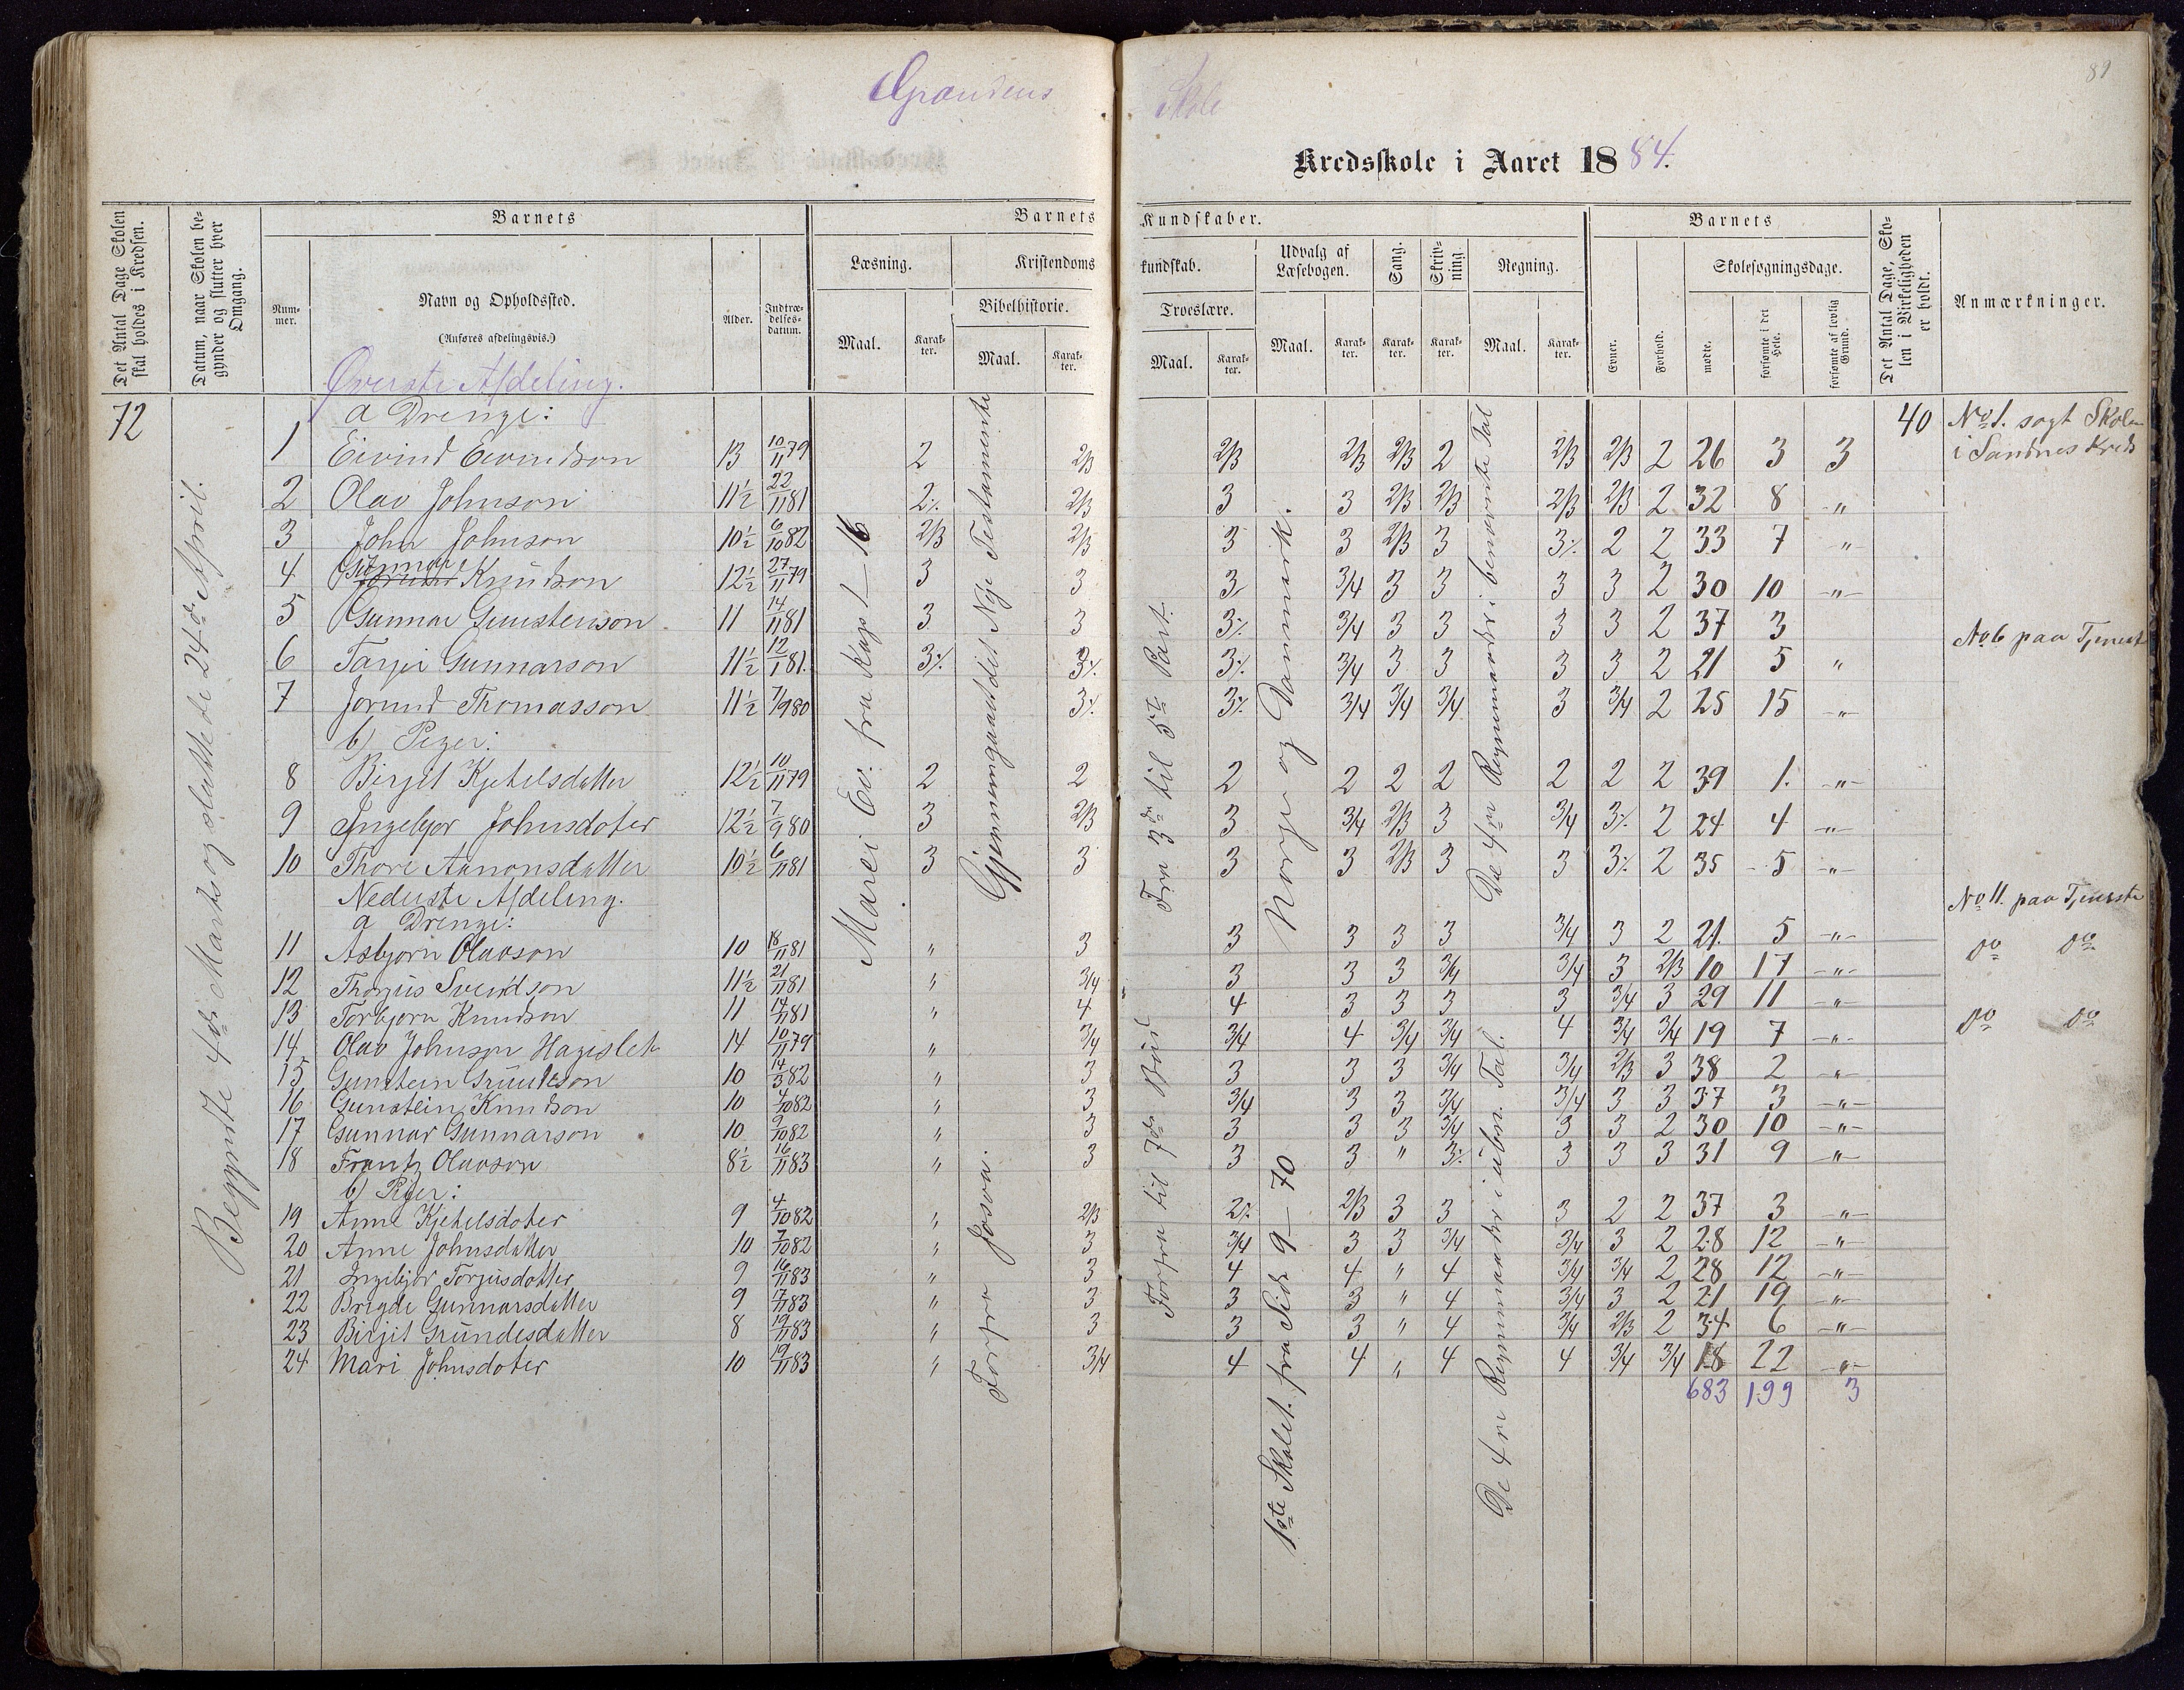 Skole
89
Kredsskole i Aaret 1884.
Det Antal Dage Skolen skal holdes i Kredsen.
Datum, naar Skolen begynder og slutter hver Omgang.
Barnets
Nummer.
Navn og Opholdssted.
(Anføres afdelingsvis.)
Alder.
Indtrædelsesdatum.
Barnets Kundskaber.
Læsning.
Maal.
Karakter.
Kristendomskundskab.
Bibelhistorie.
Maal.
Karakter.
Troeslære.
Maal.
Karakter.
Udvalg af Læsebogen.
Maal.
Karakter.
Sang.
Karakter.
Skrivning.
Karakter.
Regning.
Maal.
Karakter.
Barnets
Evner.
Forhold.
Skolesøgningsdage.
mødte.
forsømte i det Hele.
forsømte af lovlig Grund.
Det Antal Dage, Skolen i Virkeligheden er holdt.
Anmærkninger.
72
Begyndte 4de Marts og sluttede 24de April.
Øverste Afdeling.
a Drenge:
40
1 Eivind Eivindson 13 10/11 79 2 2/3 2/3 2/3 2/3 2 2/3 2/3 2 26 3 3 No 1. søgt Skolen i Sandnes Kreds
2 Olav Johnson 11½ 22/11 81 2% 2/3 3 3 2/3 2/3 2/3 2/3 2 32 8 "
3 John Johnson 10½ 6/10 82 2/3 2/3 3 3 2/3 3 3% 2 2 33 7 "
4 Gunnar Knudson 12½ 27/11 79 3 3 3 3/4 3 3 3 3 2 30 10 "
5 Gunnar Gunstenson 11 14/11 81 3 3 3% 3/4 3 3 3 3 2 37 3
6 Tarjei Gunnarson 11½ 12/1 81 3% 3% 3% 3/4 3 3 3 3 2 21 5 " No 6 paa Tjeneste
7 Jorund Thomasson 11½ 7/9 80 3% 3% 3/4 3/4 3/4 3 3/4 2 25 15 "
b) Piger:
8 Birgit Kjetelsdatter 12½ 10/11 79 2 2 2 2 2 2 2 2 2 39 1. "
9 Ingebjør Johnsdoter 12½ 7/9 80 3 2/3 3 3/4 2/3 3 3/4 3% 2 24 4 "
10 Thore Aanonsdatter 10½ 6/11 81 3 3 3 3 2/3 3 3 3% 2 35 5 "
Nederste Afdeling.
a Drenge:
11 Asbjørn Olavson 10 18/11 81 " 3 3 3 3 3 3/4 3 2 21. 5 " No 11. paa Tjeneste
12 Thorjus Sveindson 11½ 21/11 81 " 3/4 3 3 3 3/4 3/4 3 2/3 10 17 " do do
13 Torbjørn Knudson 11 14/11 81 " 4 4 3 3 3 3 3/4 3 29 11 "
14 Olav Johnson Hageslet 14 10/11 79 " 3/4 3/4 4 3/4 3/4 4 3/4 3/4 19 7 " do do
15 Gunstein Grundeson 10 14/3 82 " 3 3 3 3 3/4 3/4 2/3 3 38 2 "
16 Gunstein Knudson 10 4/10 82 " 3 3/4 3 3 3/4 3/4 3 3 37 3 "
17 Gunnar Gunnarson 10 9/10 82 " 3 3 3 3 3/4 3 3 2 30 10 "
18 Frantz Olavson 8½ 16/11 83 " 3 3 3 " 3% 3 3 3 31 9 "
b) Piger:
19 Anne Kjetelsdoter 9 4/10 82 " 2/3 2% 2/3 3 3 3 2 2 37 3 "
20 Anne Johnsdatter 10 7/10 82 " 3 3/4 3 3 3/4 3/4 3 2 28 12 "
21 Ingebjør Torjusdotter 9 16/11 83 " 3 4 4 " 4 3/4 3/4 2 28 12 "
22 Bregde Gunnarsdatter 9 17/11 83 " 3 3 3 " 4 3/4 3 2 21 19 "
23 Birgit Grundesdatter 8 19/11 83 " 3 3 3 " 4 3/4 2/3 2 34 6 "
24 Mari Johnsdoter 10 19/11 83 " 3/4 4 4 " 4 4 3/4 3/4 18 22 "
683 199 3
fra Kap 1–16
Gjennemgaaet det Nye Testamente
Forfra Josva.
Fra 3de til 5te Part.
Forfra til 7de Bud
Norge og Danmark.
1ste Skolet. fra Side 9–70
De 4re Regnemaader i benævnte Tal
De 4re Regnemaader i ubn. Tal.